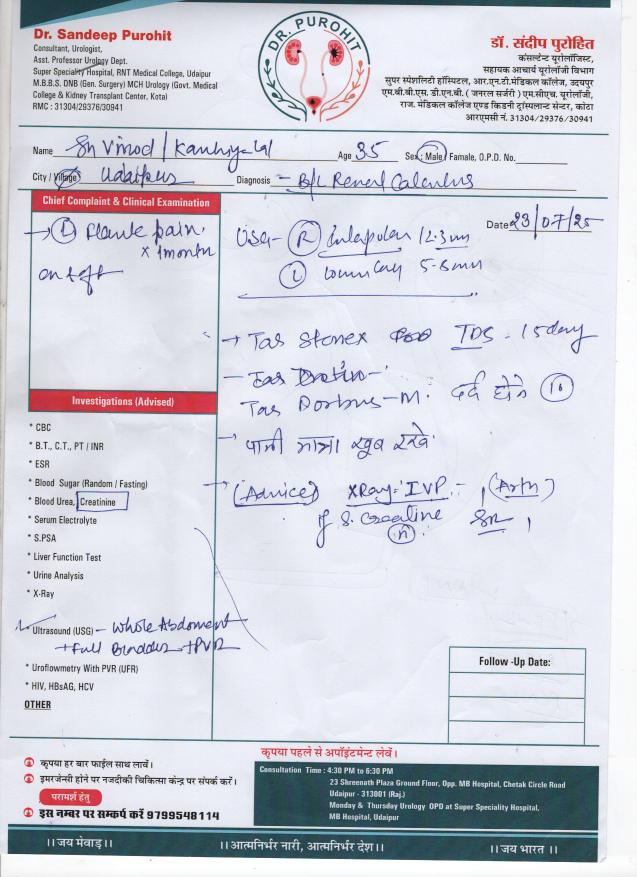 Dr. Sandeep Purohit
Consultant, Urologist,
Asst. Professor Urology Dept.
Super Speciality Hospital, RNT Medical College, Udaipur
M.B.B.S. DNB (Gen. Surgery) MCH Urology (Govt. Medical
College & Kidney Transplant Center, Kota)
RMC : 31304/29376/30941
DR. PUROHIT
डॉ. संदीप पुरोहित
कंसल्टेन्ट यूरोलॉजिस्ट,
सहायक आचार्य यूरोलॉजी विभाग
सुपर स्पेशलिटी हॉस्पिटल, आर.एन.टी.मेडिकल कॉलेज, उदयपुर
एम.बी.बी.एस. डी.एन.बी. ( जनरल सर्जरी ) एम.सीएच. यूरोलॉजी,
राज. मेडिकल कॉलेज एण्ड किडनी ट्रांसप्लान्ट सेन्टर, कोटा
आरएमसी नं. 31304/29376/30941
Name Sh Vinod / Kanhiya lal Age 35 Sex : Male / Famale, O.P.D. No.
City / Village Udaipur Diagnosis - B/L Renal Calculus
Chief Complaint & Clinical Examination
Date 23/07/25
pain
x 1 month
on + off
USG - R Interpolar 12.3 mm
L 5-6 mm
→ Tab Stonex TDS - 15 day
Tab - M. दर्द होने 10
→ पानी मात्रा खूब रखें
→ (Advice) XRay IVP -
if S. Creatine
n
Investigations (Advised)
* CBC
* B.T., C.T., PT / INR
* ESR
* Blood Sugar (Random / Fasting)
* Blood Urea, Creatinine
* Serum Electrolyte
* S.PSA
* Liver Function Test
* Urine Analysis
* X-Ray
Ultrasound (USG) - Whole Abdoment
+ Full Bladder + PVR
* Uroflowmetry With PVR (UFR)
* HIV, HBsAG, HCV
OTHER
Follow -Up Date:
कृपया पहले से अपॉइंटमेन्ट लेवें।
कृपया हर बार फाईल साथ लावें।
इमरजेन्सी होने पर नजदीकी चिकित्सा केन्द्र पर संपर्क करें।
परामर्श हेतु
इस नम्बर पर सम्पर्क करें 9799548114
Consultation Time : 4:30 PM to 6:30 PM
23 Shreenath Plaza Ground Floor, Opp. MB Hospital, Chetak Circle Road
Udaipur - 313001 (Raj.)
Monday & Thursday Urology OPD at Super Speciality Hospital,
MB Hospital, Udaipur
।। जय मेवाड़ ।। ।। आत्मनिर्भर नारी, आत्मनिर्भर देश ।। ।। जय भारत ।।